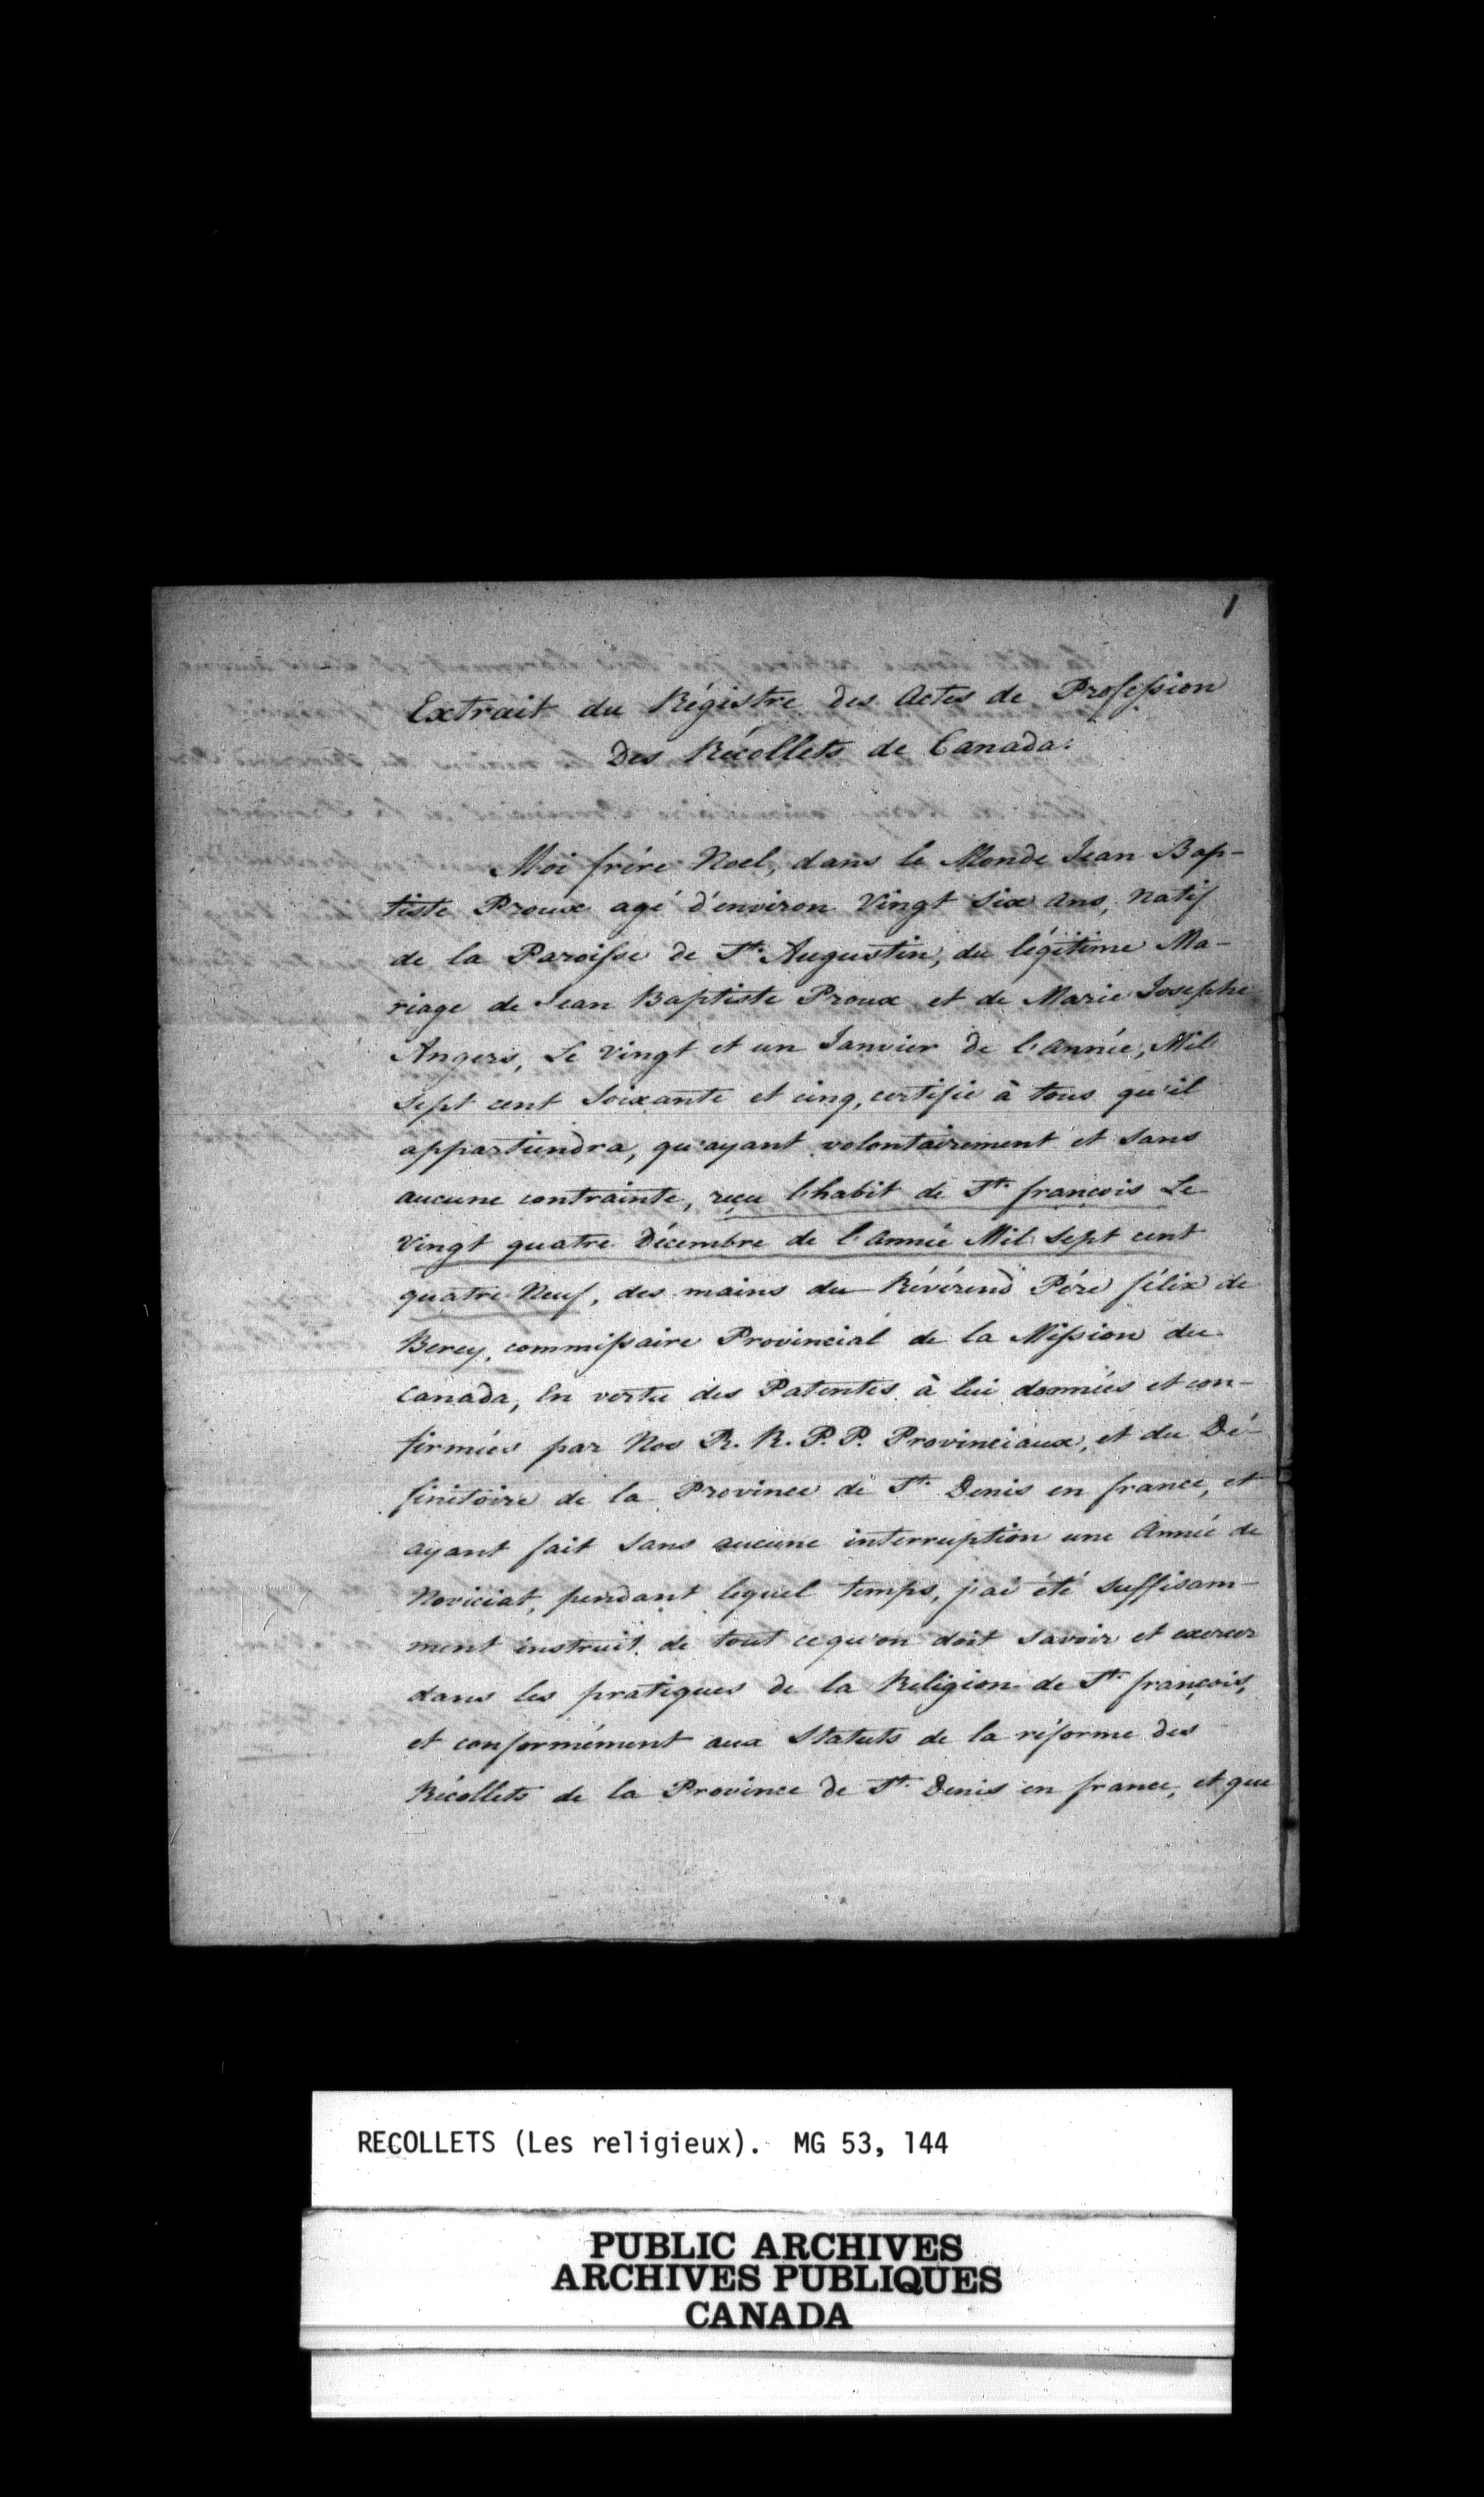 1
Extrait du Régistre des Actes de Profession
Des Récollets de Canada.
Moi frére Noel, dans le Monde Jean Bap-
tiste Proux agé d'environ Vingt Six Ans, Natif
de la Paroisse de St. Augustin, du légitime Ma-
riage de Jean Baptiste Proux et de Marie Josephe
Angers, Le Vingt et un Janvier de l'Année, Mil
Sept cent Soixante et cinq, certifie à tous qu'il
appartiendra, qu'ayant volontairement et Sans
aucune contrainte, reçu l'habit de St. françois Le
Vingt quatre Décembre de l'Année Mil Sept cent
quatre Neuf, des mains du Révérend Pére félix de
Berey, commissaire Provincial de la Mission du
Canada, En vertu des Patentes à lui données et con-
firmées par Nos R. R. P. P. Provinciaux, et du Dé-
finitoire de la Province de St. Denis en france, et
ayant fait Sans aucune interruption une Année de
Noviciat, pendant lequel temps, j'ai été Suffisam-
ment instruit de tout ce qu'on doit Savoir et exercer
dans les pratiques de la Religion de St. françois,
et conformément aux Statuts de la réforme des
Récollets de la Province de St. Denis en france, et que
RECOLLETS (Les religieux). MG 53, 144
PUBLIC ARCHIVES
ARCHIVES PUBLIQUES
CANADA